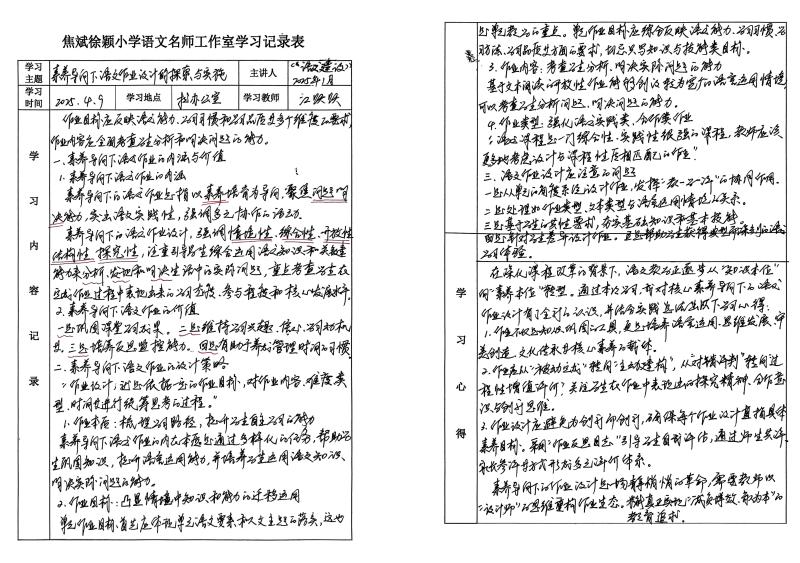 焦斌徐颖小学语文名师工作室学习记录表
学习主题
素养导向下语文作业设计的探索与实施
主讲人
《语文建设》2025年1月
学习时间
2025.4.9
学习地点
办公室
学习教师
学习内容记录
作业目标应反映语文能力、学习习惯和学习品质等多个维度的要求,
作业内容应全面考查学生分析和解决问题的能力。
一、素养导向下语文作业的内涵与价值
1.素养导向下语文作业的内涵
素养导向下的语文作业是指以素养培育为导向,聚焦问题解
决能力,突出语文实践性,强调多元协作的活动。
素养导向下的语文作业设计,强调情境性、综合性、开放性
结构性、探究性,注重引导学生综合运用语文知识和关键
能力来分析、发现和解决生活中的实际问题,重点考查学生在
完成作业过程中表现出来的学习态度、参与程度和核心发展水平。
2.素养导向下语文作业的价值
一是巩固课堂学习效果。二是维持学习兴趣、信心、学习动机
等。三是培养反思监控能力。四是有助于养成管理时间的习惯。
二、素养导向下语文作业的设计策略
“作业设计,还是依据一定的作业目标,对作业内容、难度、类
型、时间等进行统筹思考的过程。”
1.作业本质:梳理学习路径,提升学生自主学习的能力
素养导向下语文作业的内在本质是通过多样化的任务,帮助学
生巩固知识,提升语言运用能力,并培养学生运用语文知识、
解决实际问题的能力。
2.作业目标:凸显情境中知识和能力的迁移运用
单元作业目标,首先应体现单元语文要素和人文主题的落实,这也
是单元教学的重点。单元作业目标应综合反映语文能力、学习习惯、学
习方法、学习品质等方面的要求,切忌只见知识与技能类目标。
3.作业内容:考查学生分析、解决实际问题的能力
基于文本阅读的开放性作业能够创设较为宽广的语言运用情境,
可以考查学生分析问题、解决问题的能力。
4.作业类型:强化语文实践类、合作类作业
“语文课程是一门综合性、实践性很强的课程,教师应该
更多地考虑设计与课程性质相匹配的作业”
三、语文作业设计应注意的问题
一是从单元的角度系统设计作业,发挥“教—学—评”的协同作用。
二是处理好作业类型、文本类型与语言运用情境的关系。
三是基于学生的共性要求,夯实基础知识和基本技能
四是针对学生差异设计作业。
习体验。
学习心得
在深化课程改革的背景下,语文教学正逐步从“知识本位”
向“素养本位”转型。通过本次学习,我对核心素养导向下的语文
作业设计有了全新的认识,并结合实践总结出以下学习心得:
1.作业不仅是知识巩固的工具,更是培养语言运用、思维发展、审
美创造、文化传承等核心素养的载体。
2.作业应从“被动完成”转向“主动建构”,从“对错评判”转向过
程性增值评价,关注学生在作业中表现出的探究精神、合作意
识与创新思维。
2.作业设计应避免为创新而创新,确保每个作业设计直指具体
素养目标。采用“作业反思日志”引导学生自我评估,通过师生共评、
家长参评等方式形成多元评价体系。
素养导向下的作业设计是一场静悄悄的革命,需要教师以
“设计师”的思维重构作业生态。
教育追求。